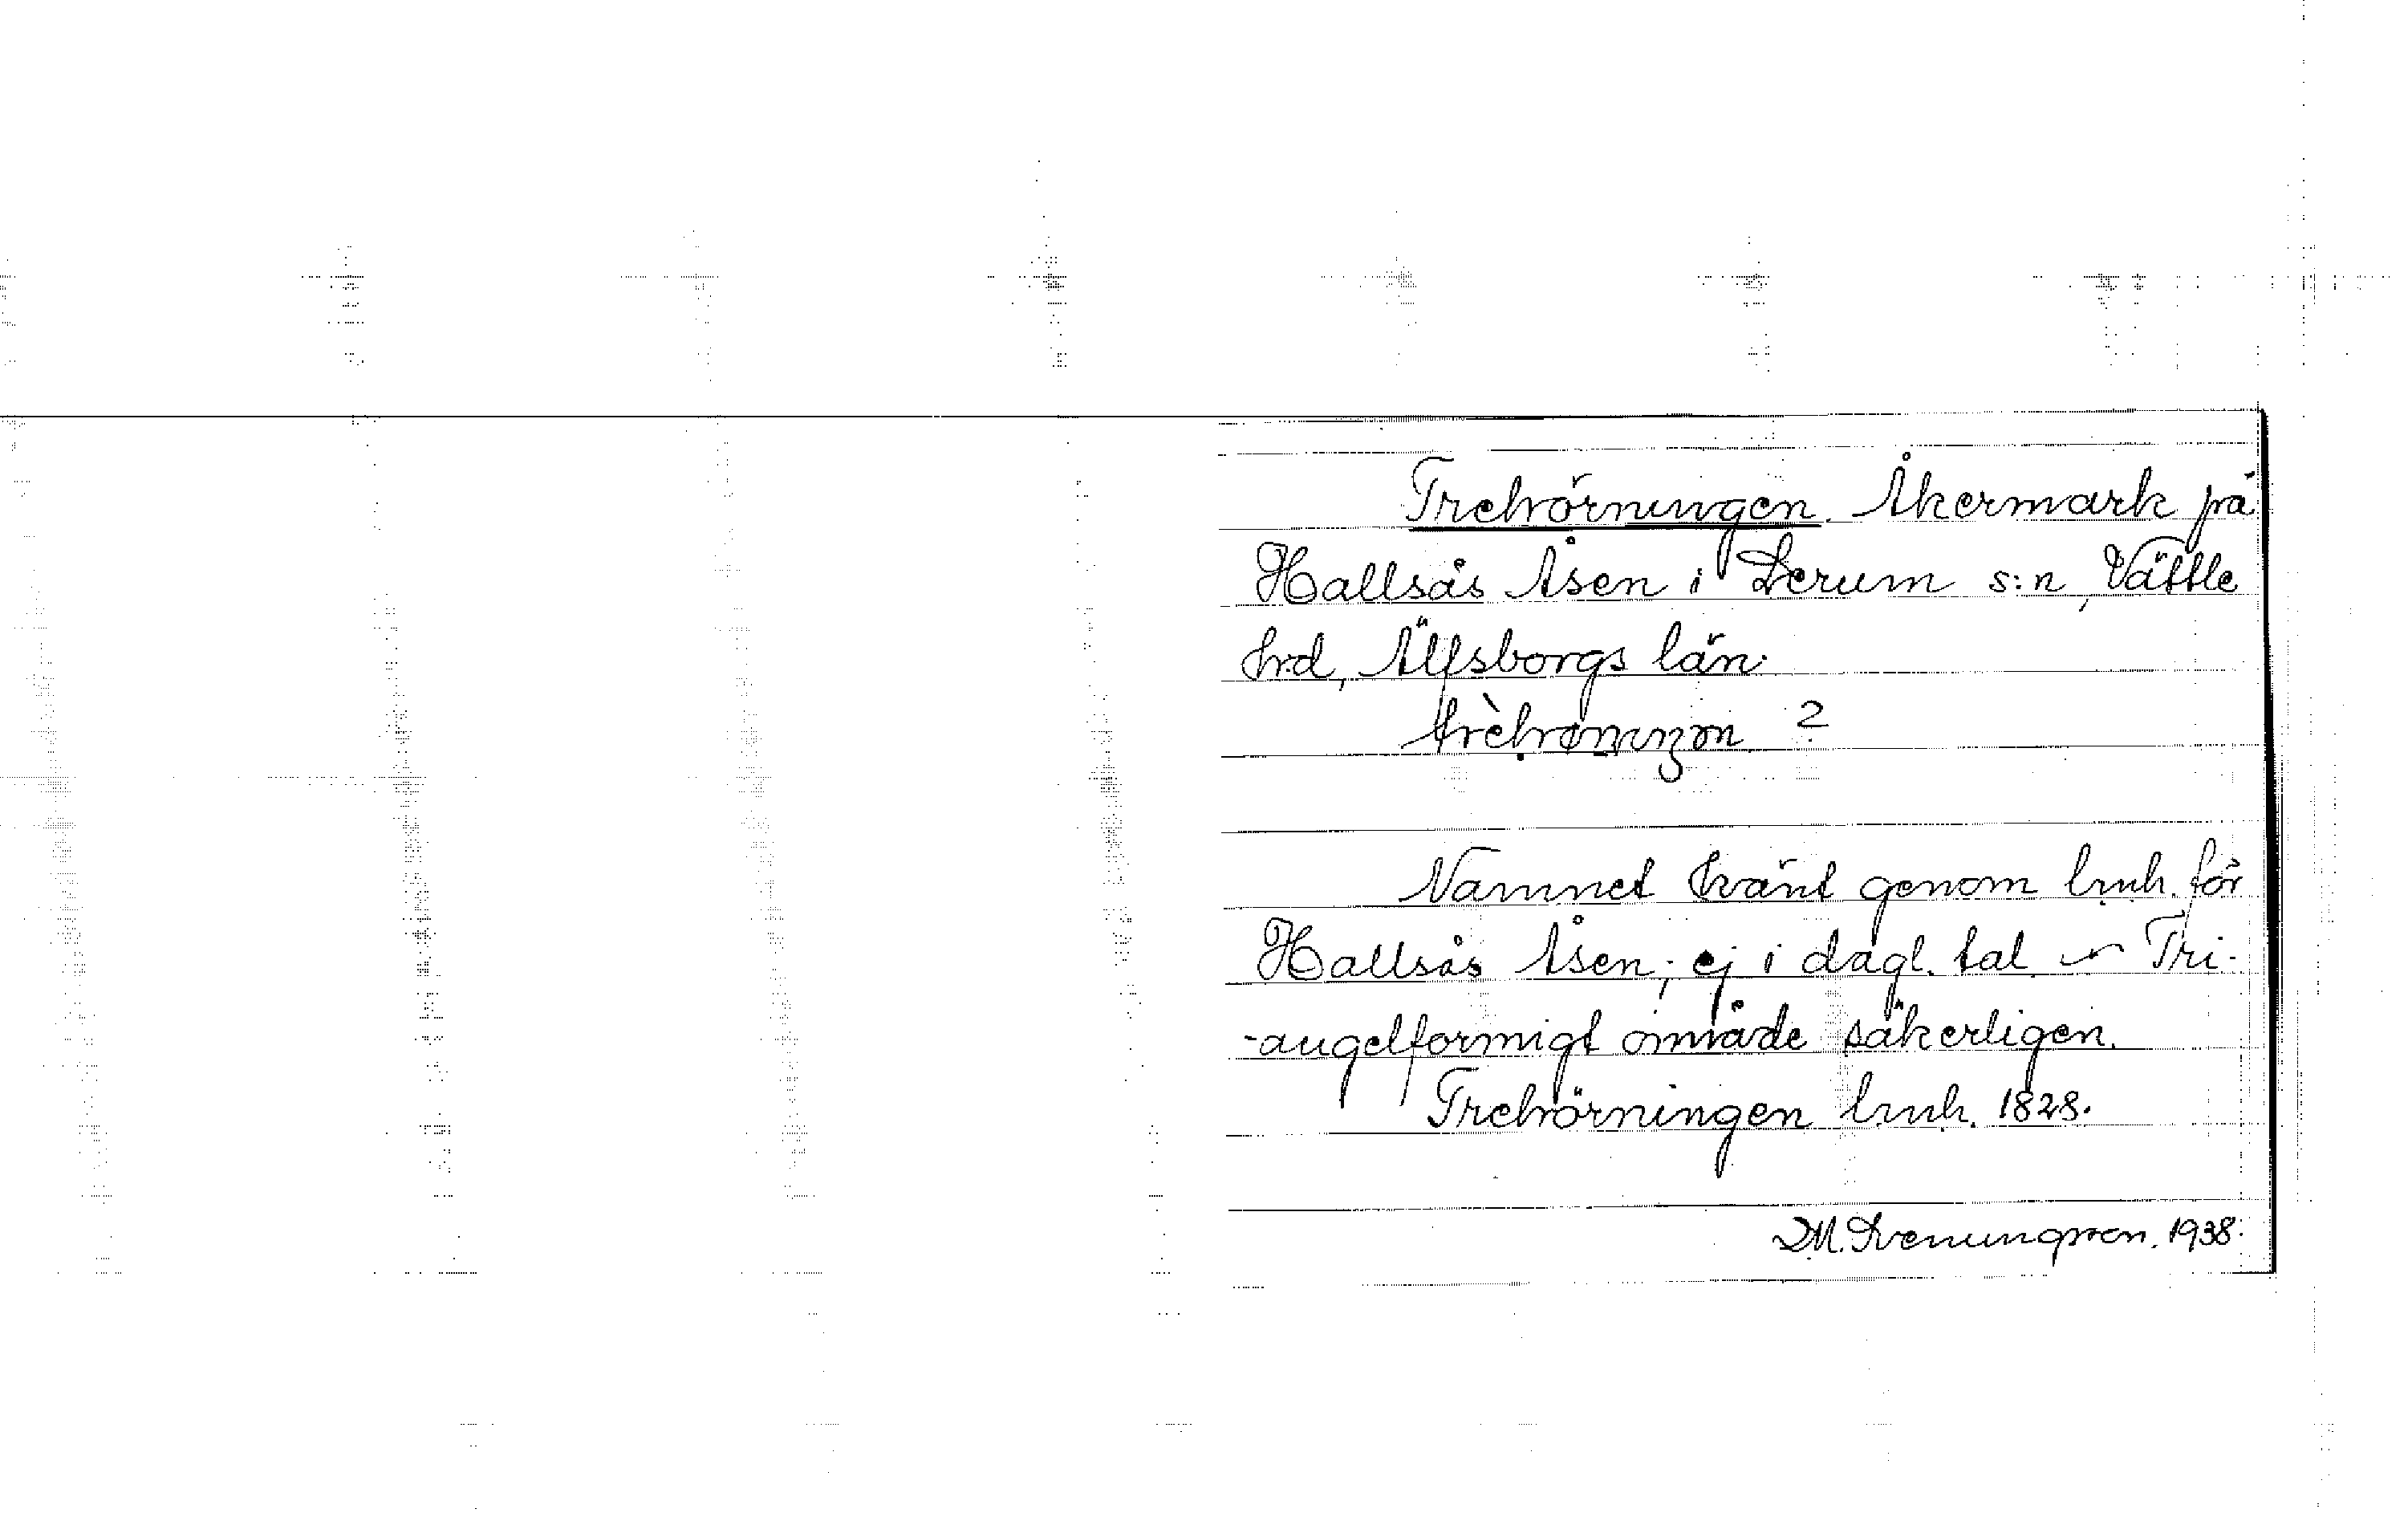 Trehörningen. Åkermark på
Hallsås Åsen i Lerum s:n, Vättle
hrd, Älfsborgs län.
?
Namnet känt genom lmh. för
Hallsås Åsen; ej i dagl. tal. ~ Tri-
-angelformigt område säkerligen.
Trehörningen lmh. 1828.
M. Svenungsson. 1938.